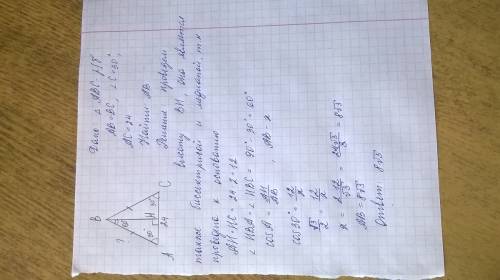 Дано: △ABC, р/б
AB=BC, ∠C=30°,
AC=24
Найти: AB
Решение: проведем
высоту BH, она является
также биссектрисой и медианой, т.к
проведена к основанию
AH=HC=24:2=12
∠HBA=∠HBC=90°-30°=60°
cosA=AH/AB, AB-x
cos30°=12/x
√3/2=12/x
x=2·12/√3=24√3/3=8√3
AB=8√3
Ответ: 8√3
B
?
60°
30°
H
30°
A
24
C